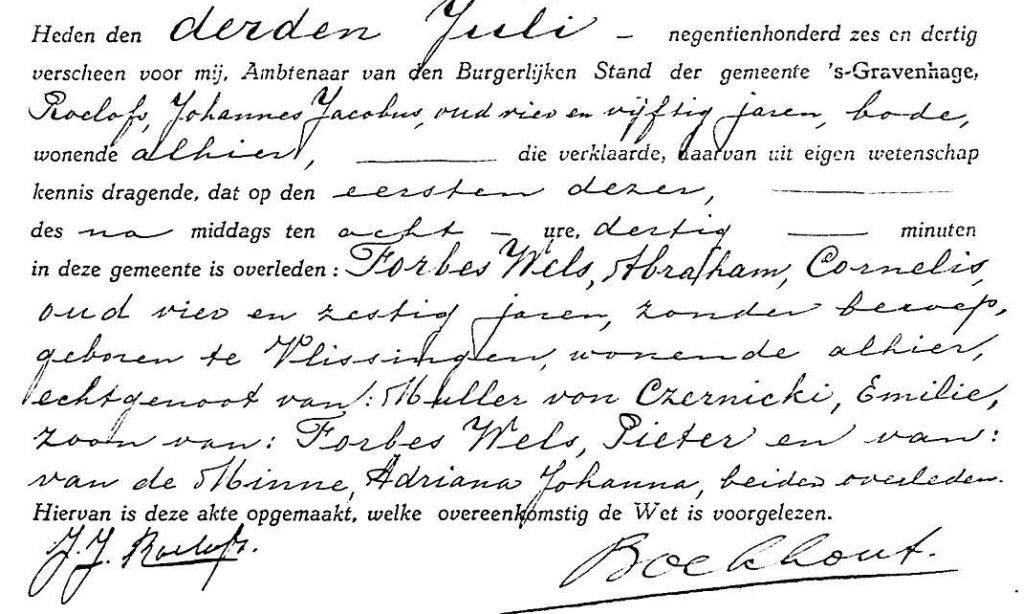 Heden den derden Juli – negentienhonderd zes en dertig
verscheen voor mij, Ambtenaar van den Burgerlijken Stand der gemeente 's-Gravenhage,
Roelofs, Johannes Jacobus, oud vier en vijftig jaren, bode,
wonende alhier, die verklaarde, daarvan uit eigen wetenschap
kennis dragende, dat op den eersten dezer,
des na middags ten acht – ure, dertig minuten
in deze gemeente is overleden: Forbes Wels, Abraham, Cornelis,
oud vier en zestig jaren, zonder beroep,
geboren te Vlissingen, wonende alhier,
echtgenoot van: Muller von Czernicki, Emilie,
zoon van: Forbes Wels, Pieter en van:
van de Minne, Adriana Johanna, beiden overleden.
Hiervan is deze akte opgemaakt, welke overeenkomstig de Wet is voorgelezen.
J. J. Roelofs. Boekhout.